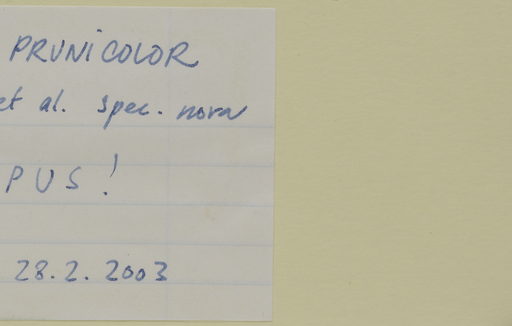 PRUNICOLOR
et al. spec. nova
PUS!
28.2.2003